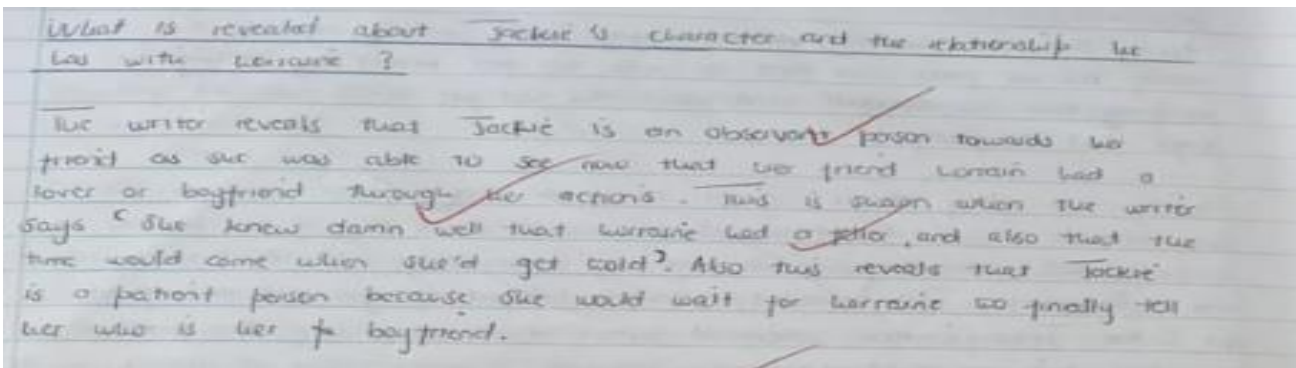 What is revealed about Jackie's character and the relationship he
has with Lorraine ?
The writer reveals that Jackie is an observant person towards her
friend as she was able to see how that her friend Lorrain had a
lover or boyfriend through her actions. This is shown when the writer
says "She knew damn well that Lorraine had a fella, and also that the
time would come when she'd get told". Also this reveals that Jackie
is a patient person because she would wait for Lorraine to finally tell
her who is her boyfriend.